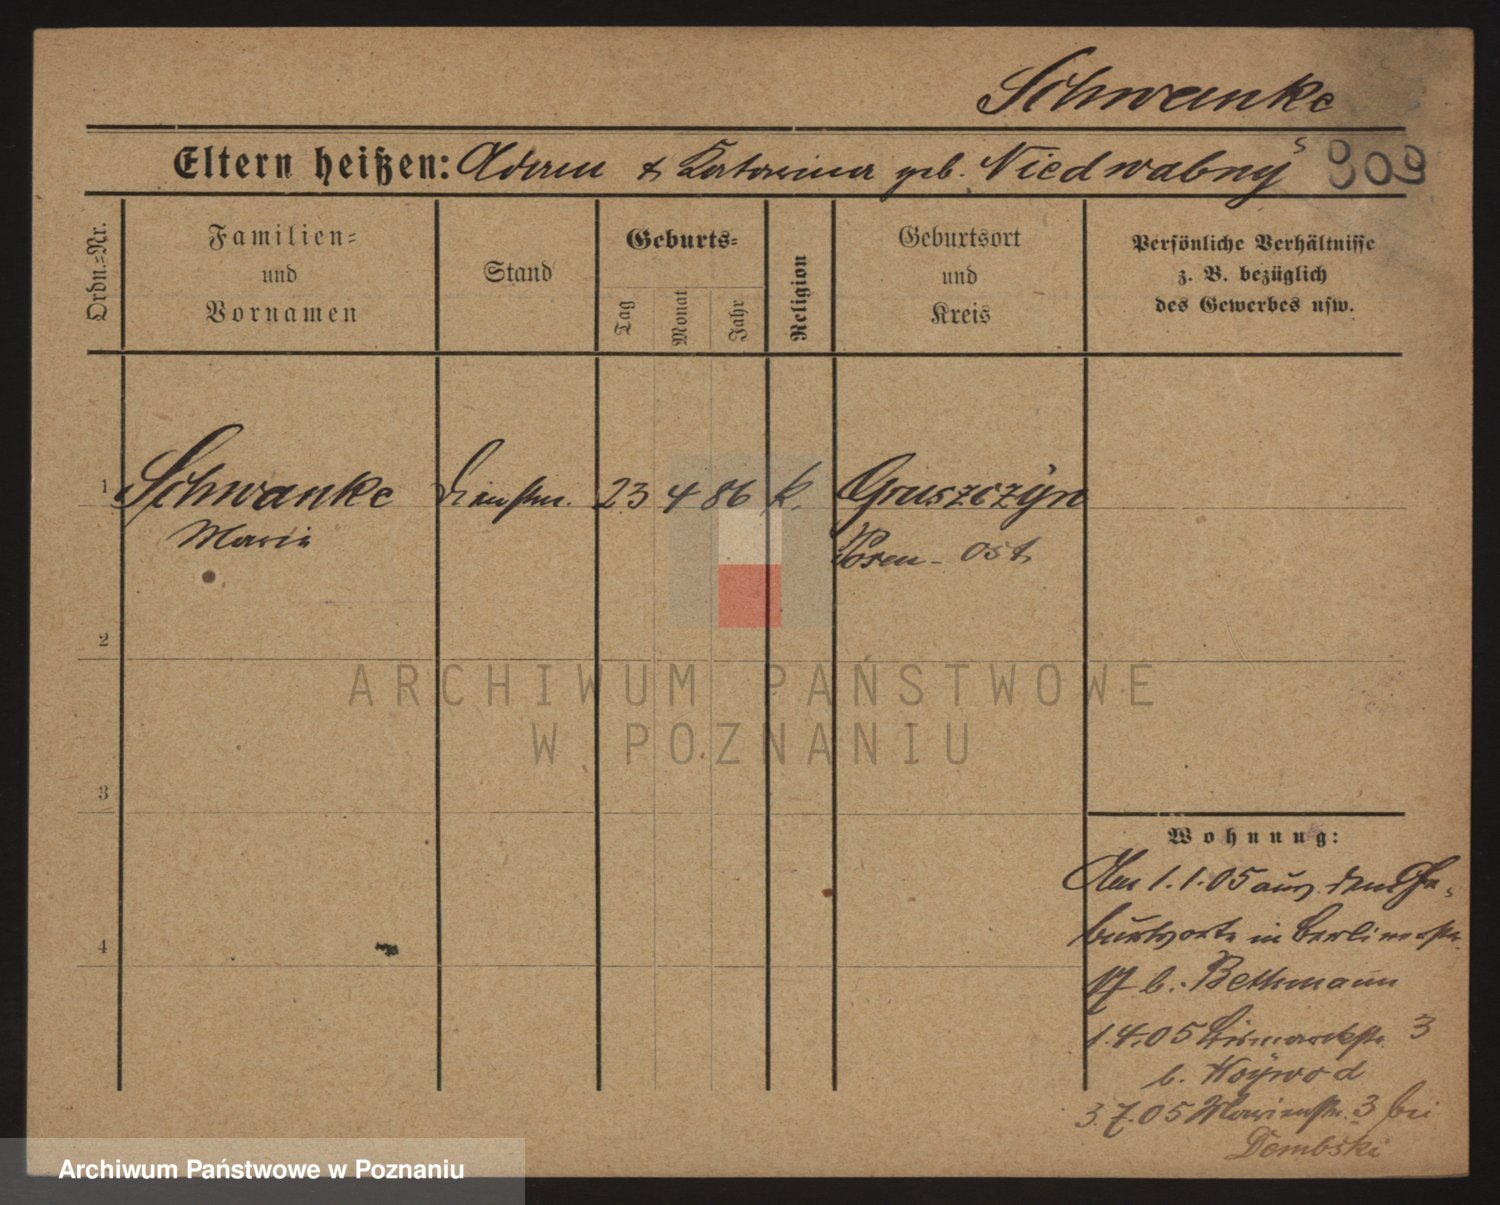 Schwanke
Eltern heißen: Adam & Katarina geb. Niedwabny
909
Ordn.=Nr.
Familien=
und
Vornamen
Stand
Geburts=
Tag
Monat
Jahr
Religion
Geburtsort
und
Kreis
Persönliche Verhältnisse
z. B. bezüglich
des Gewerbes usw.
1 Schwanke Dienstm. 23 4 86 k. Gruszczyn
Marie Posen - Ost
2
3
4
Wohnung:
Am 1.1.05 aus dem Ge-
burtsorte in Berlinerstr.
17 b. Bethmann
1.4.05 Bismarckstr. 3
b. Woywod
3.7.05 Marienstr. 3 bei
Dembski
ARCHIWUM PAŃSTWOWE
W POZNANIU
Archiwum Państwowe w Poznaniu